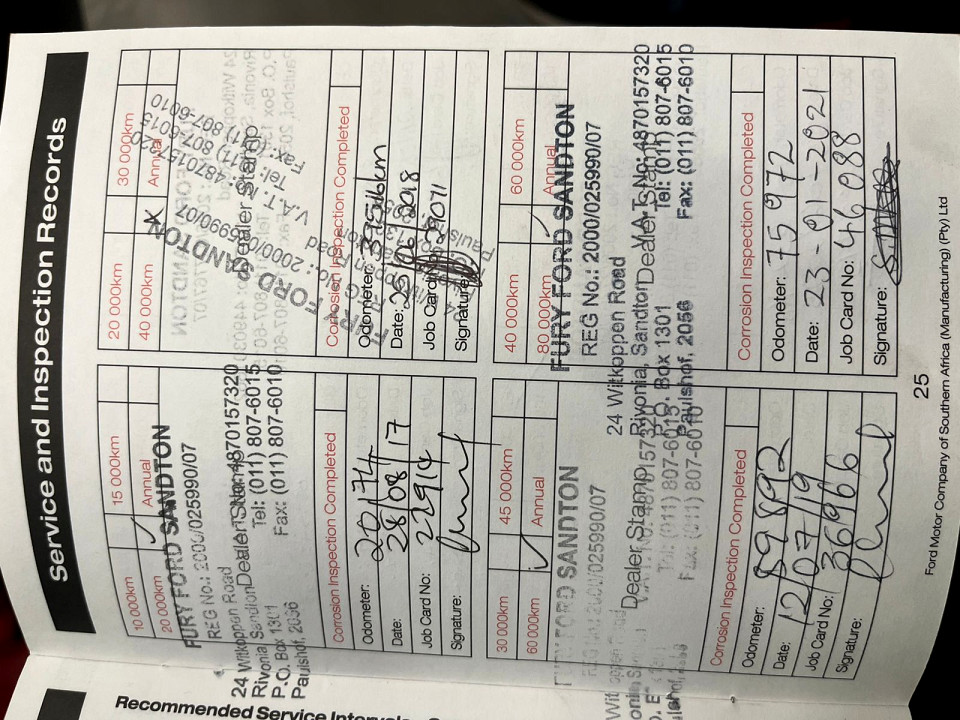 Service and Inspection Records
10 000km
15 000km
20 000km
Annual
FURY FORD SANDTON
REG No.: 2000/025990/07
24 Witkoppen Road
Rivonia, Sandton
Dealer Stamp
V.A.T. No: 4870157320
P.O. Box 1301
Tel: (011) 807-6015
Paulshof, 2056
Fax: (011) 807-6010
Corrosion Inspection Completed
Odometer: 20174
Date: 28/08/17
Job Card No: 22914
Signature:
20 000km
30 000km
40 000km
Annual
FURY FORD SANDTON
V.A.T. No: 4870157320
Tel: (011) 807-6015
Fax: (011) 807-6010
Dealer Stamp
Corrosion Inspection Completed
Odometer:
Date:
Job Card No:
Signature:
30 000km
45 000km
60 000km
Annual
FURY FORD SANDTON
REG No.: 2000/025990/07
Dealer Stamp
V.A.T. No: 4870157320
Tel: (011) 807-6015
Fax: (011) 807-6010
Corrosion Inspection Completed
Odometer: 59892
Date: 12/07/19
Job Card No: 36966
Signature:
40 000km
60 000km
80 000km
Annual
FURY FORD SANDTON
REG No.: 2000/025990/07
24 Witkoppen Road
Rivonia, Sandton
Dealer Stamp
V.A.T. No: 4870157320
P.O. Box 1301
Tel: (011) 807-6015
Paulshof, 2056
Fax: (011) 807-6010
Corrosion Inspection Completed
Odometer: 75972
Date: 23-01-2021
Job Card No: 46088
Signature:
25
Ford Motor Company of Southern Africa (Manufacturing) (Pty) Ltd